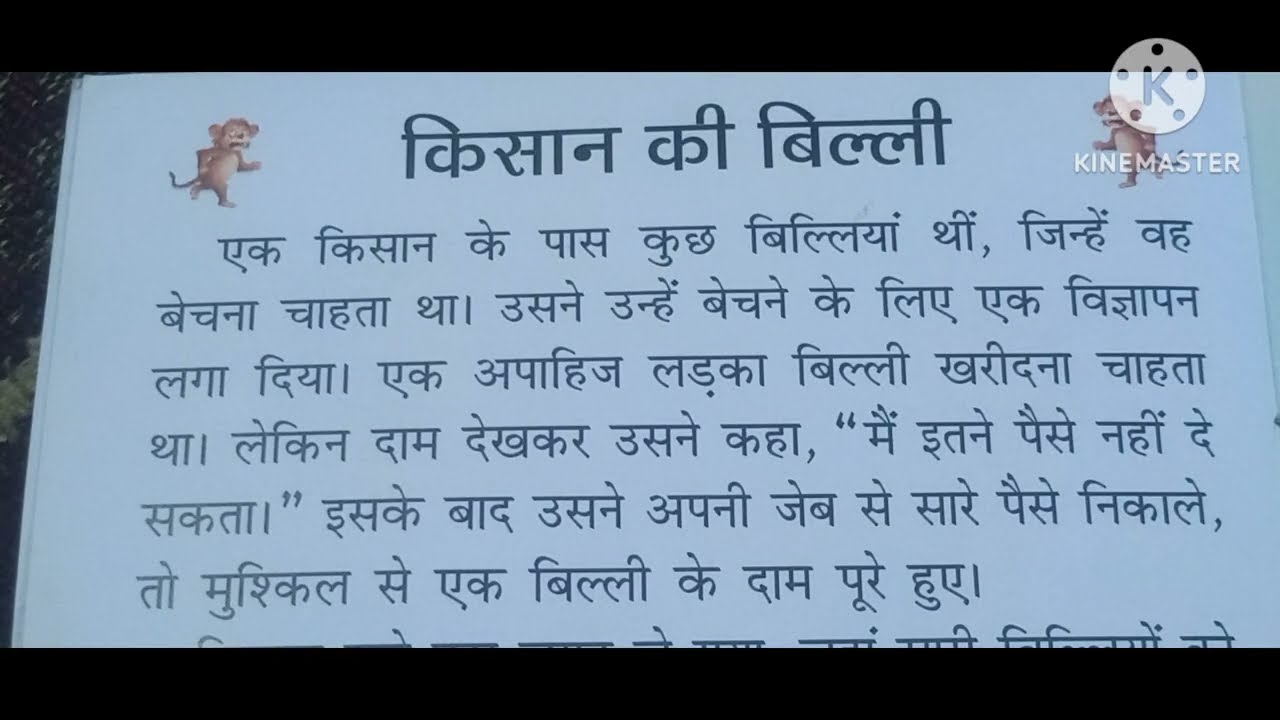 किसान की बिल्ली
KINEMASTER
एक किसान के पास कुछ बिल्लियां थीं, जिन्हें वह
बेचना चाहता था। उसने उन्हें बेचने के लिए एक विज्ञापन
लगा दिया। एक अपाहिज लड़का बिल्ली खरीदना चाहता
था। लेकिन दाम देखकर उसने कहा, “मैं इतने पैसे नहीं दे
सकता।” इसके बाद उसने अपनी जेब से सारे पैसे निकाले,
तो मुश्किल से एक बिल्ली के दाम पूरे हुए।